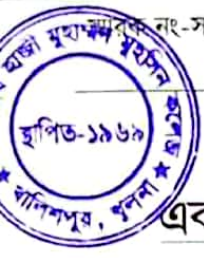 স্মারক নং-স
হাজী মুহাম্মদ মুহসিন কলেজ
স্থাপিত-১৯৬৯
★ খালিশপুর, খুলনা ★
এক